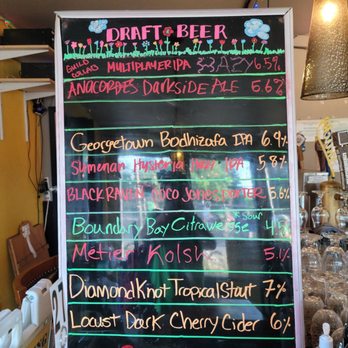 DRAFT BEER
GUILD COLLAB MULTIPLAYER IPA HAZY 6.5%
ANACORTES DARKSIDE ALE 5.6%
Georgetown Bodhizafa IPA 6.9%
Hysteria IPA 5.8%
BLACK RAVEN COCO JONES PORTER 5.6%
Boundary Bay Citraweisse Sour
Metier Kolsh 5.1%
Diamond Knot Tropical Stout 7%
Locust Dark Cherry Cider 6%